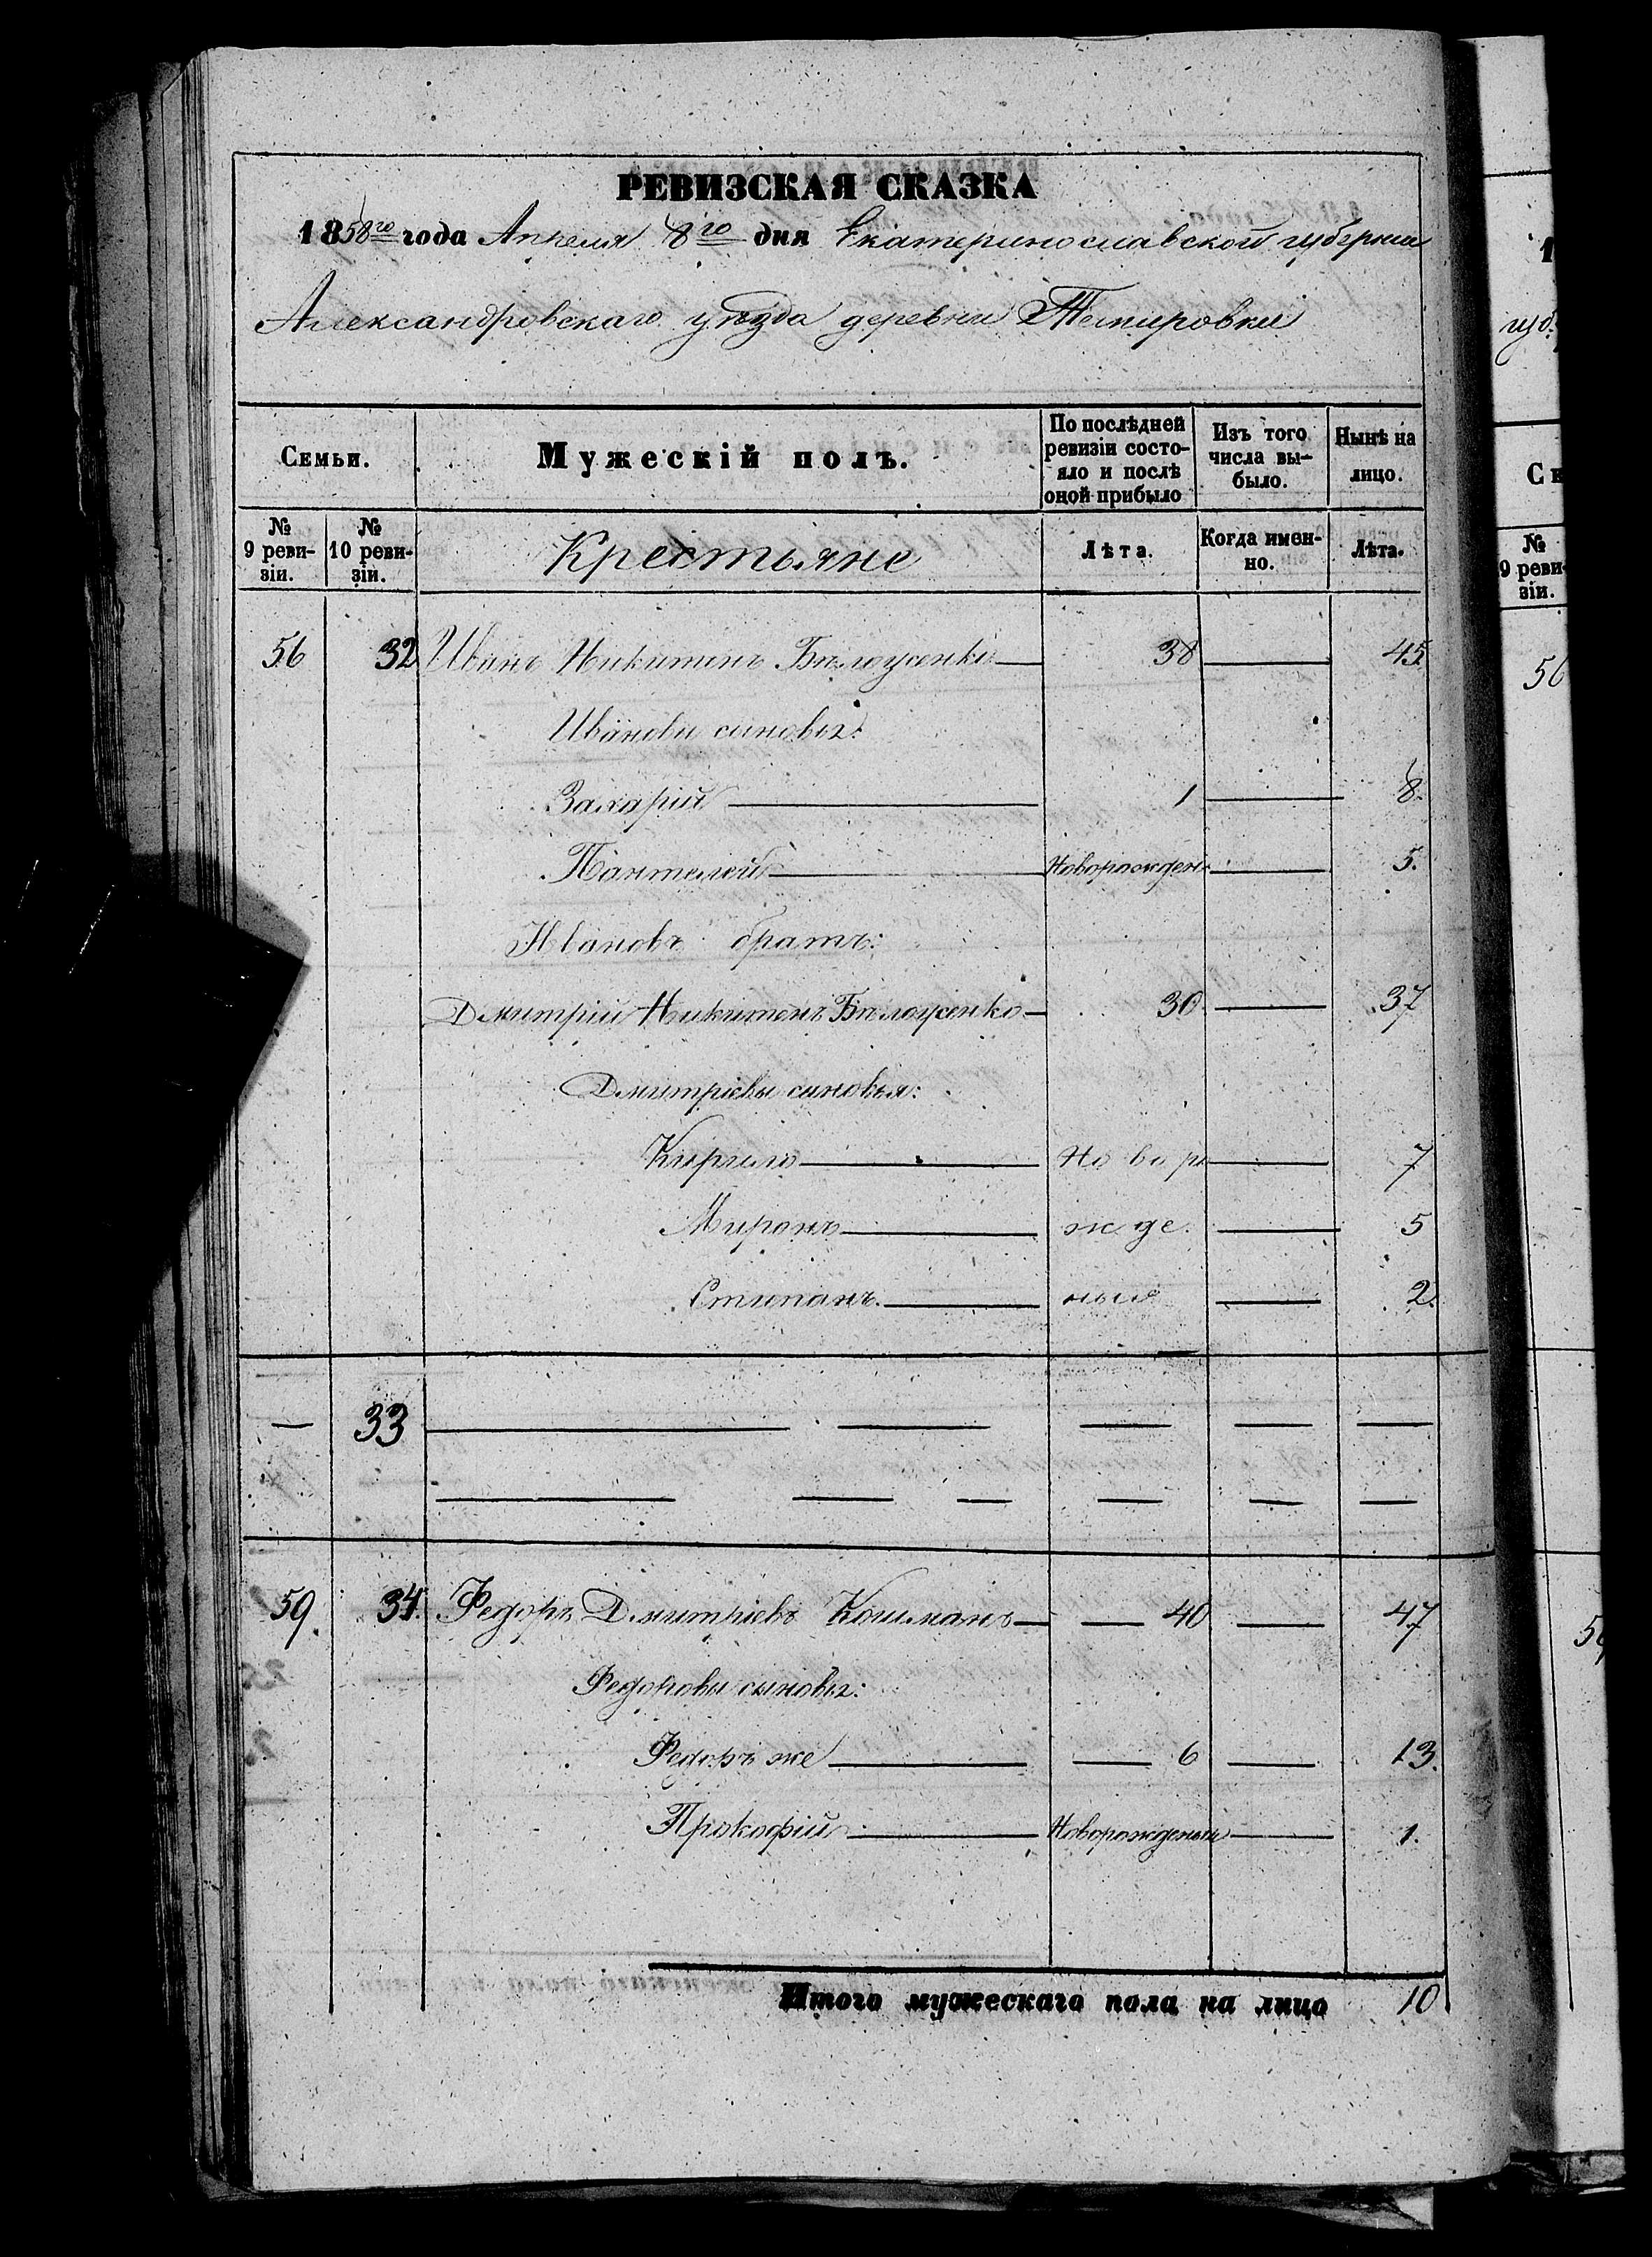 РЕВИЗСКАЯ СКАЗКА
1858го года Апреля 8го дня Екатеринославской губернии
Александровскаго уѣзда деревни Темировки
Семьи.
Мужескій полъ.
По послѣдней ревизіи состо-
яло и послѣ
оной прибыло
Изъ того
числа вы-
было.
Нынѣ на
лицо.
№ 9 реви-
зіи.
№ 10 реви-
зіи.
Крестьяне
Лѣта.
Когда имен-
но.
Лѣта.
56 32 Иванъ Никитинъ Бѣлоусенко 38 45
Ивановы сыновья:
Захарій 1 8.
Пантелей Новорожден. 5.
Ивановъ братъ:
Дмитрій Никитинъ Бѣлоусенко 30 37
Дмитріевы сыновья:
Кирило Но во ро 7
Миронъ ж де 5
Стипанъ. ныя 2.
— 33
59. 34. Федоръ Дмитріевъ Кошманъ 40 47
Федоровы сыновья:
Федоръ же 6 13.
Прокофій Новорожденый 1.
Итого мужескаго пола на лицо 10
1
губ.
Се
№
9 реви-
зіи.
56
59